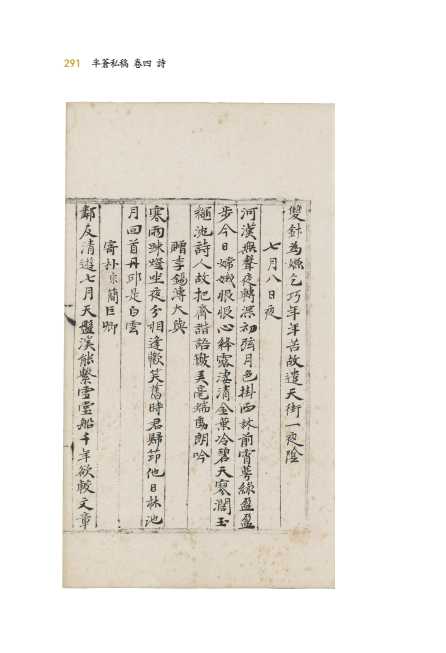 291 半蒼私稿 卷四 詩
雙針為嫌乞巧年年苦故遣天街一夜陰
七月八日夜
河漢無聲夜轉深初弦月色掛西林前宵萼綠盈盈
步今日嫦娥恨恨心釋露淒清金葉冷碧天寥濶玉
繩沈詩人故把齊諧語做美毫端費朗吟
贈李錫溥大興
寒雨踈燈坐夜分相逢歡笑舊時君歸節他日林池
月回首丹邱是白雲
寄朴 簡巨卿
鄰友清遊七月天盤溪能繫雪雪船千年欲較文章